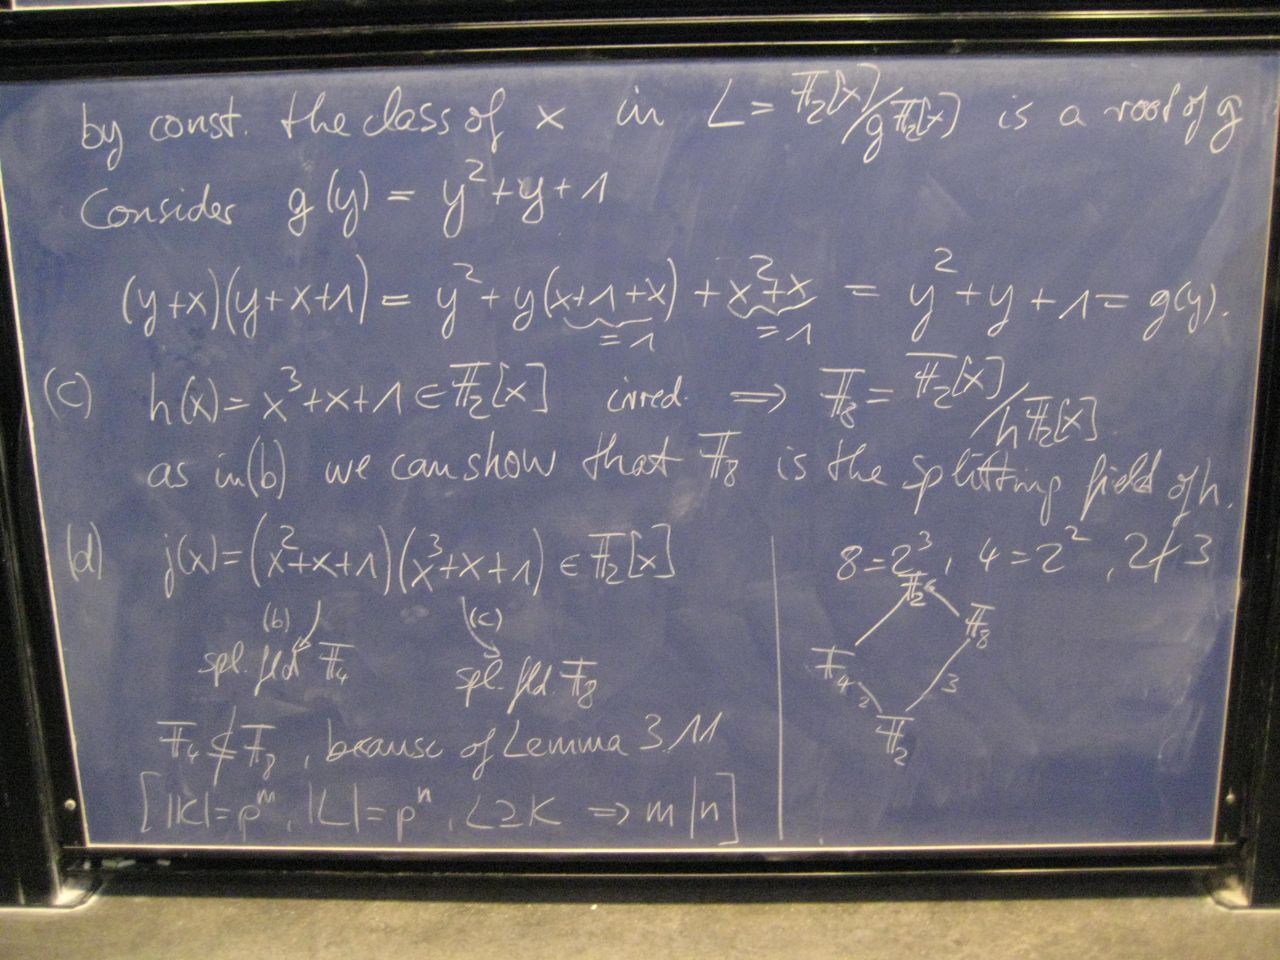 by const. the class of x in L = 𝔽₂[x]/g𝔽₂[x] is a root of g
Consider g(y) = y² + y + 1
(y+x)(y+x+1) = y² + y(x+1+x) + x²+x = y² + y + 1 = g(y).
=1 =1
(c) h(x) = x³+x+1 ∈ 𝔽₂[x] irred. ⟹ 𝔽₈ = 𝔽₂[x]/h𝔽₂[x].
as in (b) we can show that 𝔽₈ is the splitting field of h.
(d) j(x) = (x²+x+1)(x³+x+1) ∈ 𝔽₂[x]
(b) (c)
spl. fld 𝔽₄ spl. fld. 𝔽₈
𝔽₄ ⊄ 𝔽₈, because of Lemma 3.11
[|K|=pᵐ, |L|=pⁿ, L⊇K ⟹ m|n]
8=2³, 4=2², 2∤3
𝔽₂⁶
𝔽₈
𝔽₄
2 3
𝔽₂